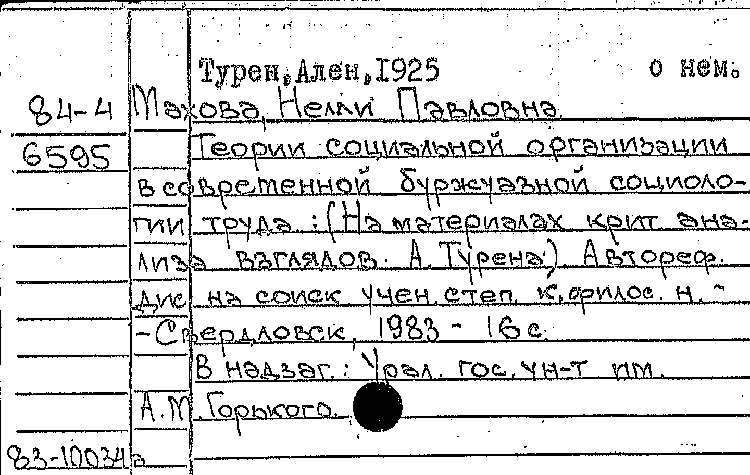 Турен, Ален, I925 о нем.
84-4 Махова, Нелли Павловна.
6595 Теории социальной организации
в современной буржуазной социоло-
гии труда : (На материалах крит ана-
лиза взглядов А. Турена) Автореф.
дис на соиск учен. степ к. филос. н. -
- Свердловск, 1983 - 16 с.
В надзаг.: Урал. гос. ун-т им.
А.М. Горького.
83-10034а